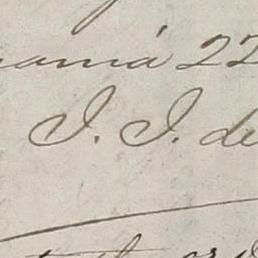 namá 22
J. J. de